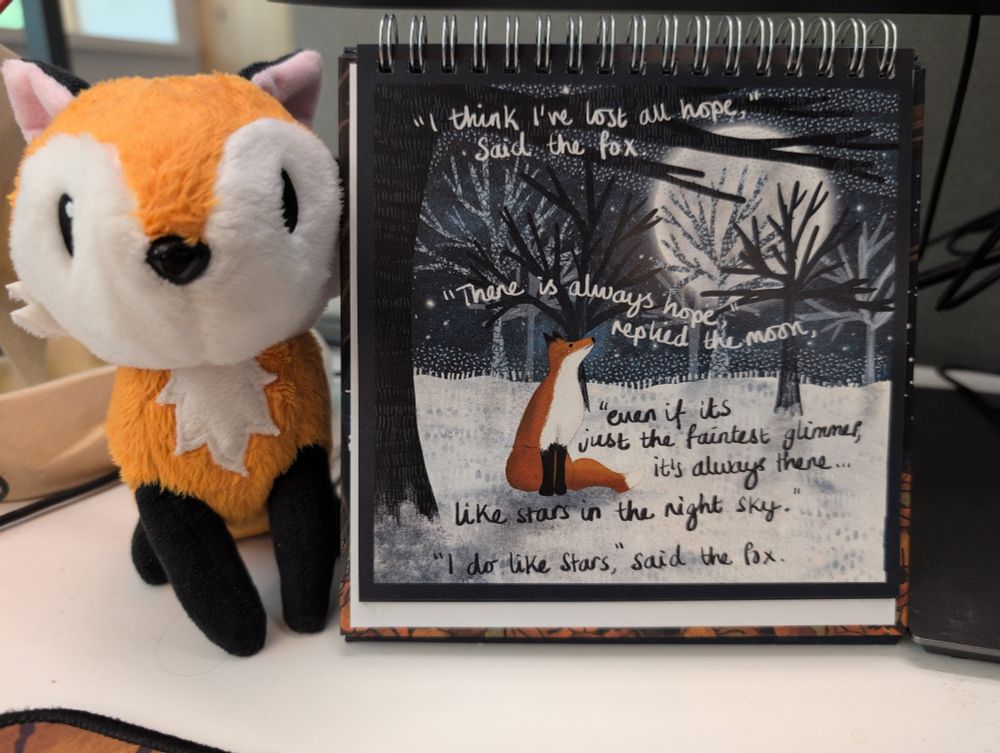 "I think I've lost all hope,"
said the fox
"There is always hope,"
replied the moon,
"even if its
just the faintest glimmer,
it's always there...
like stars in the night sky."
"I do like stars," said the fox.